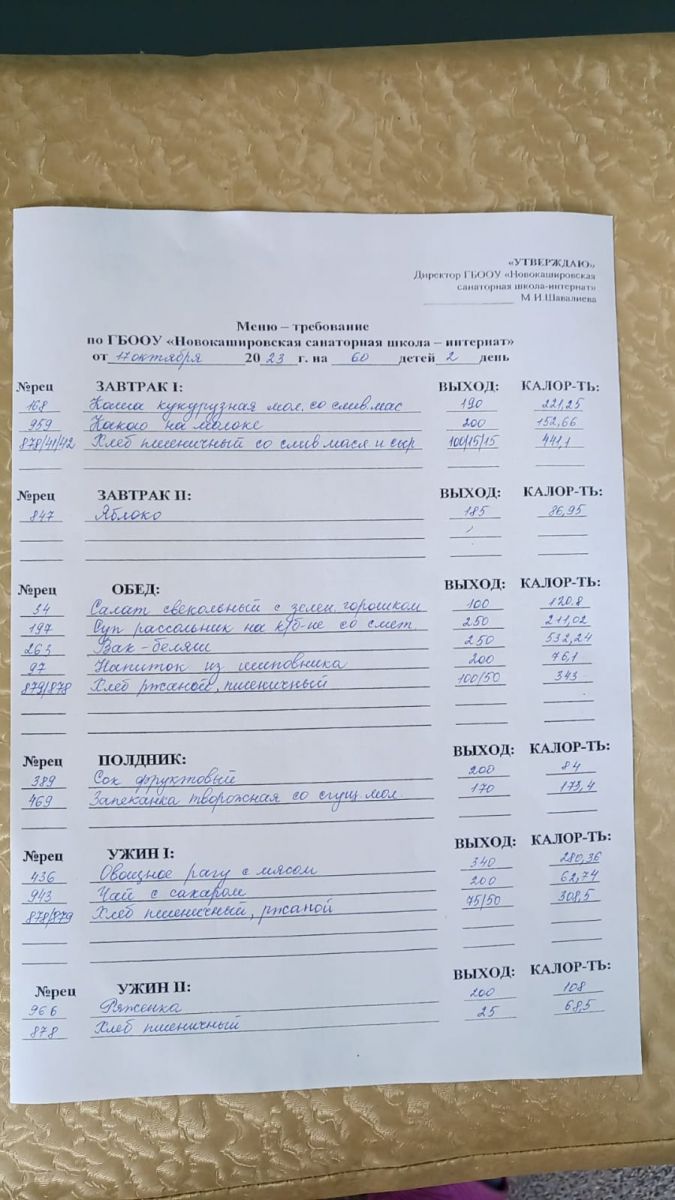 «УТВЕРЖДАЮ»
Директор ГБООУ «Новокашировская
санаторная школа-интернат»
М.И.Шавалиева
Меню – требование
по ГБООУ «Новокашировская санаторная школа – интернат»
от 17 октября 2023 г. на 60 детей 2 день
№рец ЗАВТРАК I: ВЫХОД: КАЛОР-ТЬ:
168 Каша кукурузная мол. со слив.мас 190 221,25
959 Какао на молоке 200 152,66
878/41/42 Хлеб пшеничный со слив масл и сыр 100/15/15 441,1
№рец ЗАВТРАК II: ВЫХОД: КАЛОР-ТЬ:
847 Яблоко 185 86,95
№рец ОБЕД: ВЫХОД: КАЛОР-ТЬ:
34 Салат свекольный с зелен. горошком 100 120.8
197 Суп рассольник на к/б-не со смет. 250 211,02
263 Вак-беляш 250 532,24
97 Напиток из шиповника 200 76,1
879/878 Хлеб ржаной, пшеничный 100/50 343
№рец ПОЛДНИК: ВЫХОД: КАЛОР-ТЬ:
389 Сок фруктовый 200 84
469 Запеканка творожная со сгущ. мол. 170 173,4
№рец УЖИН I: ВЫХОД: КАЛОР-ТЬ:
436 Овощное рагу с мясом 340 280,36
943 Чай с сахаром 200 62,74
878/879 Хлеб пшеничный, ржаной 75/50 308,5
№рец УЖИН II: ВЫХОД: КАЛОР-ТЬ:
966 Ряженка 200 108
878 Хлеб пшеничный 25 68,5